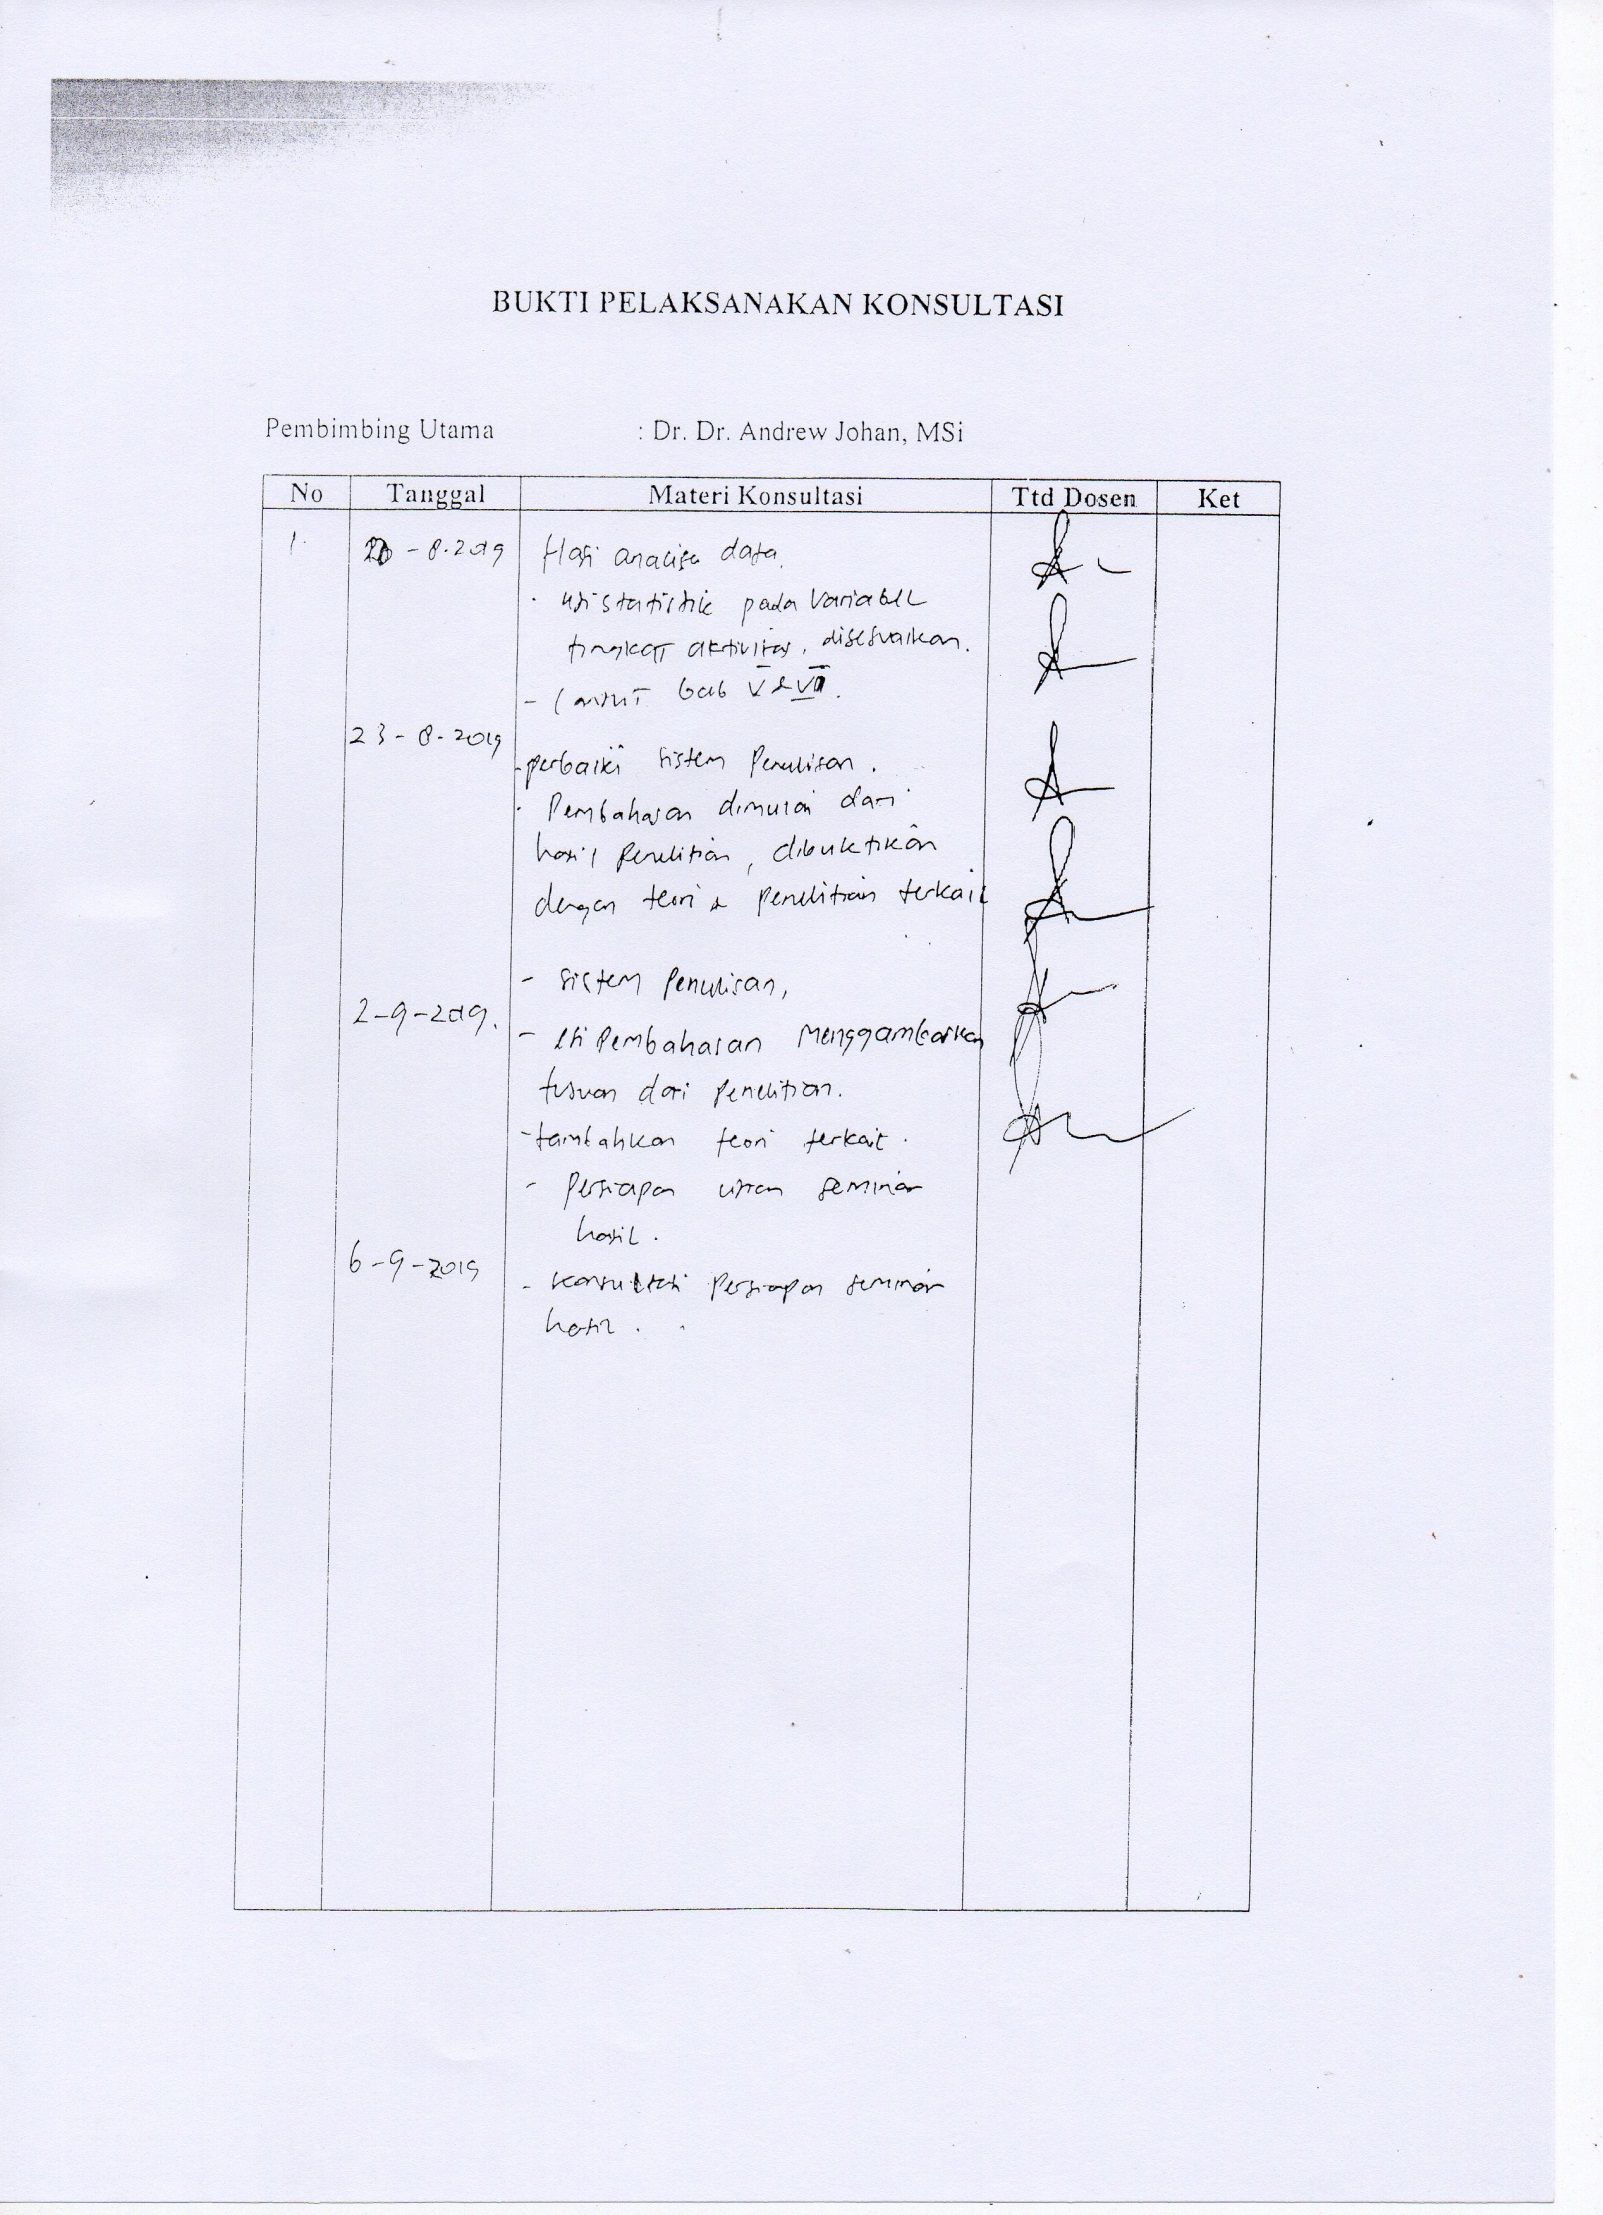 BUKTI PELAKSANAKAN KONSULTASI
Pembimbing Utama : Dr. Dr. Andrew Johan, MSi
No Tanggal Materi Konsultasi Ttd Dosen Ket
1. 20-8-2019 Hasi analisa data.
. uji statistik pada Variabel
tingkat aktivitas, disesuaikan.
- lanjut bab V & VI.
23-8-2019
- perbaiki sistem Penulisan.
. Pembahasan dimulai dari
hasil penelitian, dibuktikan
dengan teori & penelitian terkait
- sistem Penulisan,
2-9-2019.
- isi Pembahasan Menggambarkan
tujuan dari penelitian.
- tambahkan teori terkait.
- Persiapan ujian seminar
hasil.
6-9-2019
- konsultasi Persiapan seminar
hasil.